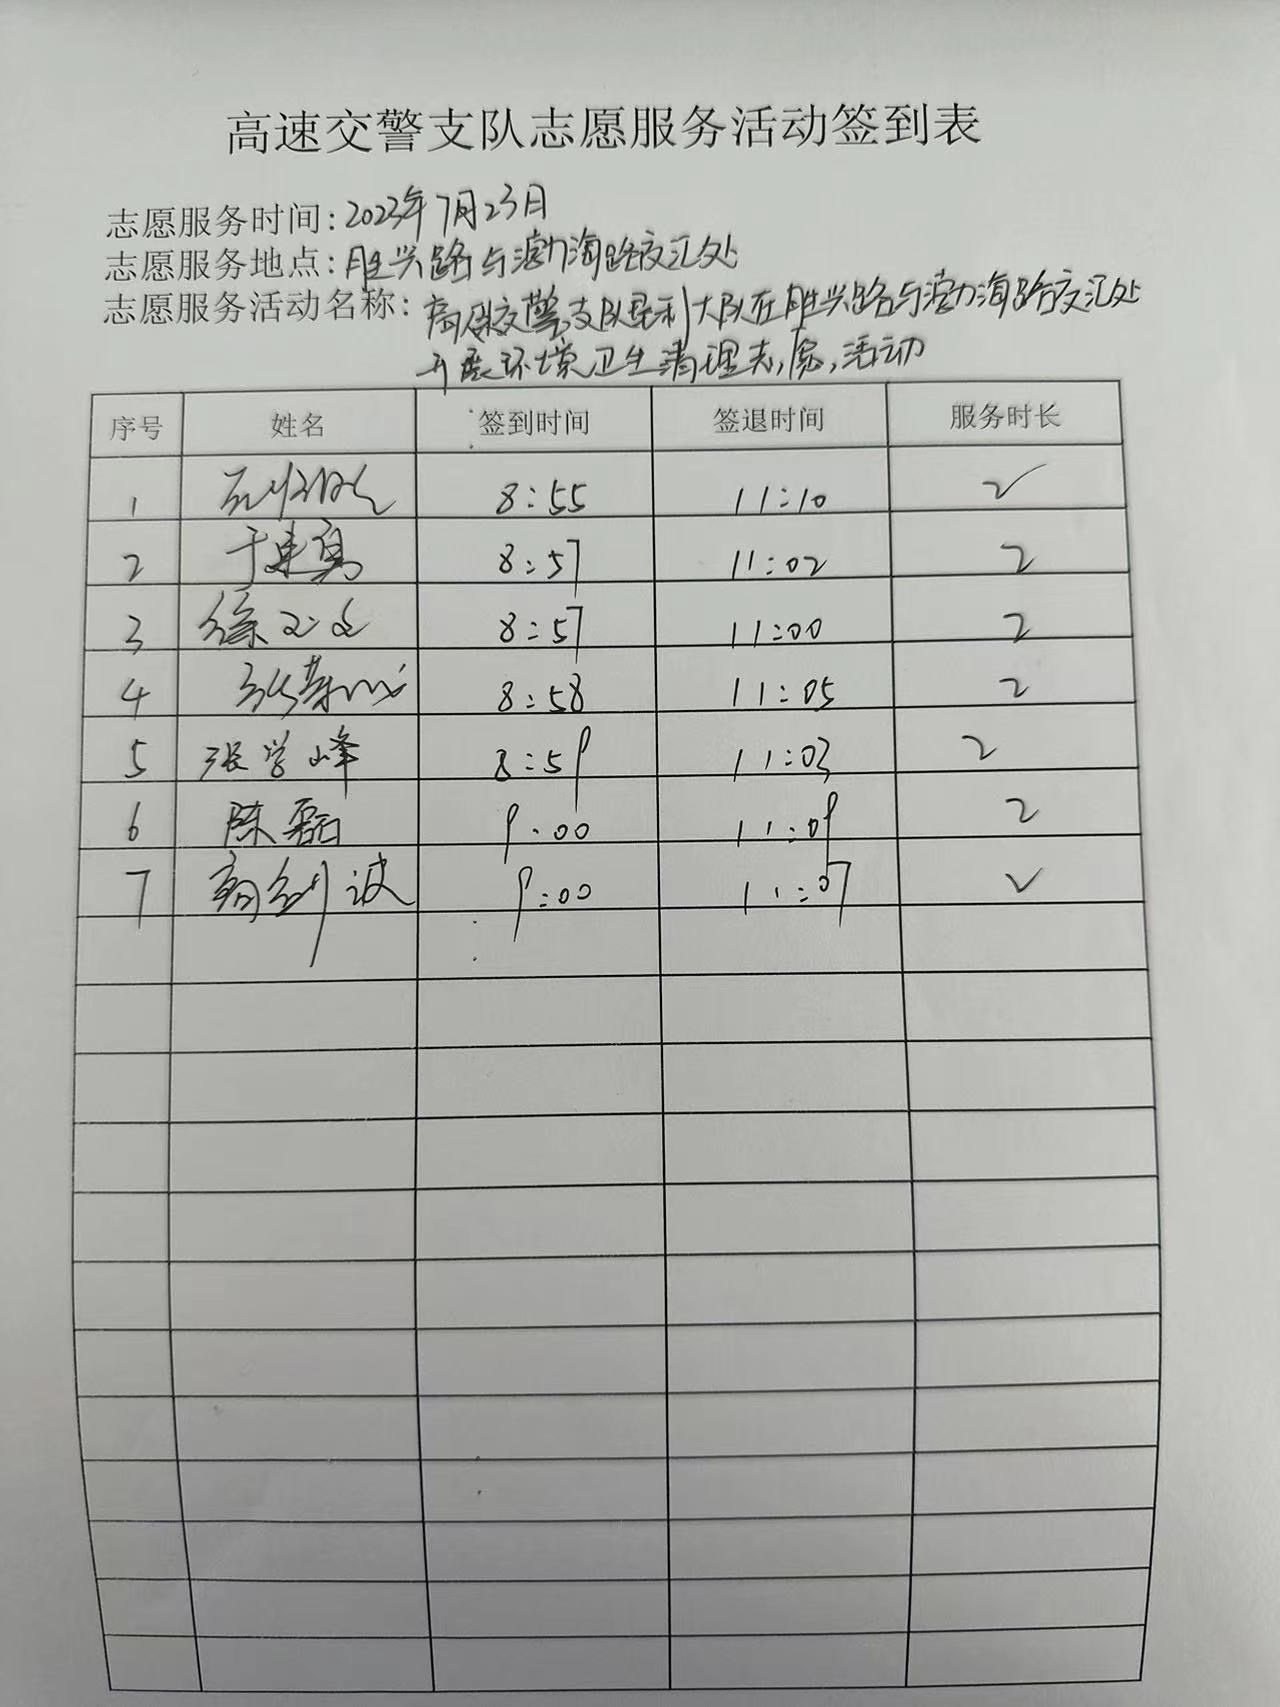 高速交警支队志愿服务活动签到表
志愿服务时间:2023年7月23日
志愿服务地点:胜兴路与渤海路交汇处
志愿服务活动名称:高速交警支队垦利大队在胜兴路与渤海路交汇处
开展环境卫生清理志愿活动
序号 姓名 签到时间 签退时间 服务时长
1 8:55 11:10 2
2 8:57 11:02 2
3 徐 8:57 11:00 2
4 8:58 11:05 2
5 张学峰 8:59 11:03 2
6 陈磊 9:00 11:09 2
7 剑波 9:00 11:07 2